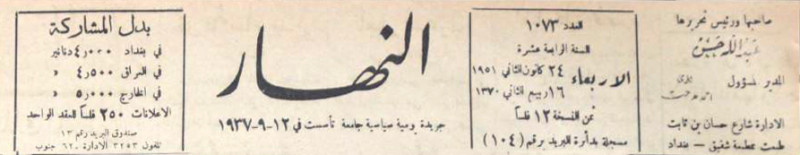 صاحبها ورئيس تحريرها
عبدالله حسن
المدير المسؤول
الادارة شارع حسان بن ثابت
طبعت بمطبعة شفيق - بغداد
العدد ١٠٧٣
السنة الرابعة عشرة
الاربعاء
٢٤ كانون الثاني ١٩٥١
١٦ ربيع الثاني ١٣٧٠
ثمن النسخة ١٢ فلساً
مسجلة بدائرة البريد برقم (١٠٤)
النهار
جريدة يومية سياسية جامعة تأسست في ١٢-٩-١٩٣٧
بدل المشاركة
في بغداد ٤٫٠٠٠ دنانير
في العراق ٤٫٥٠٠ »
في الخارج ٥٫٠٠٠ »
الاعلانات ٢٥٠ فلساً للعقد الواحد
صندوق البريد رقم ١٣
تلفون ٣٢٥٣ الادارة ٦٢٠ جنوب